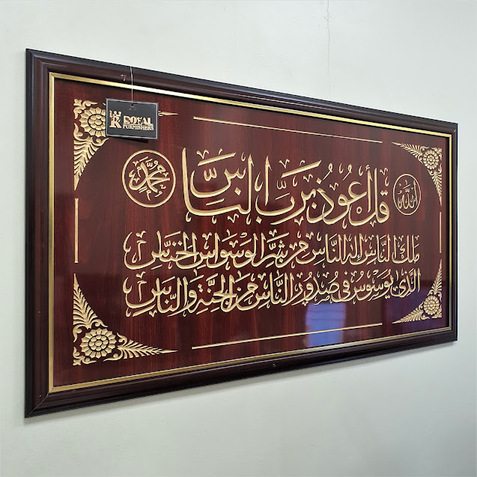 ROYAL
FURNISHERS
الله
محمد
قل أعوذ برب الناس
ملك الناس اله الناس من شر الوسواس الخناس
الذي يوسوس في صدور الناس من الجنة والناس